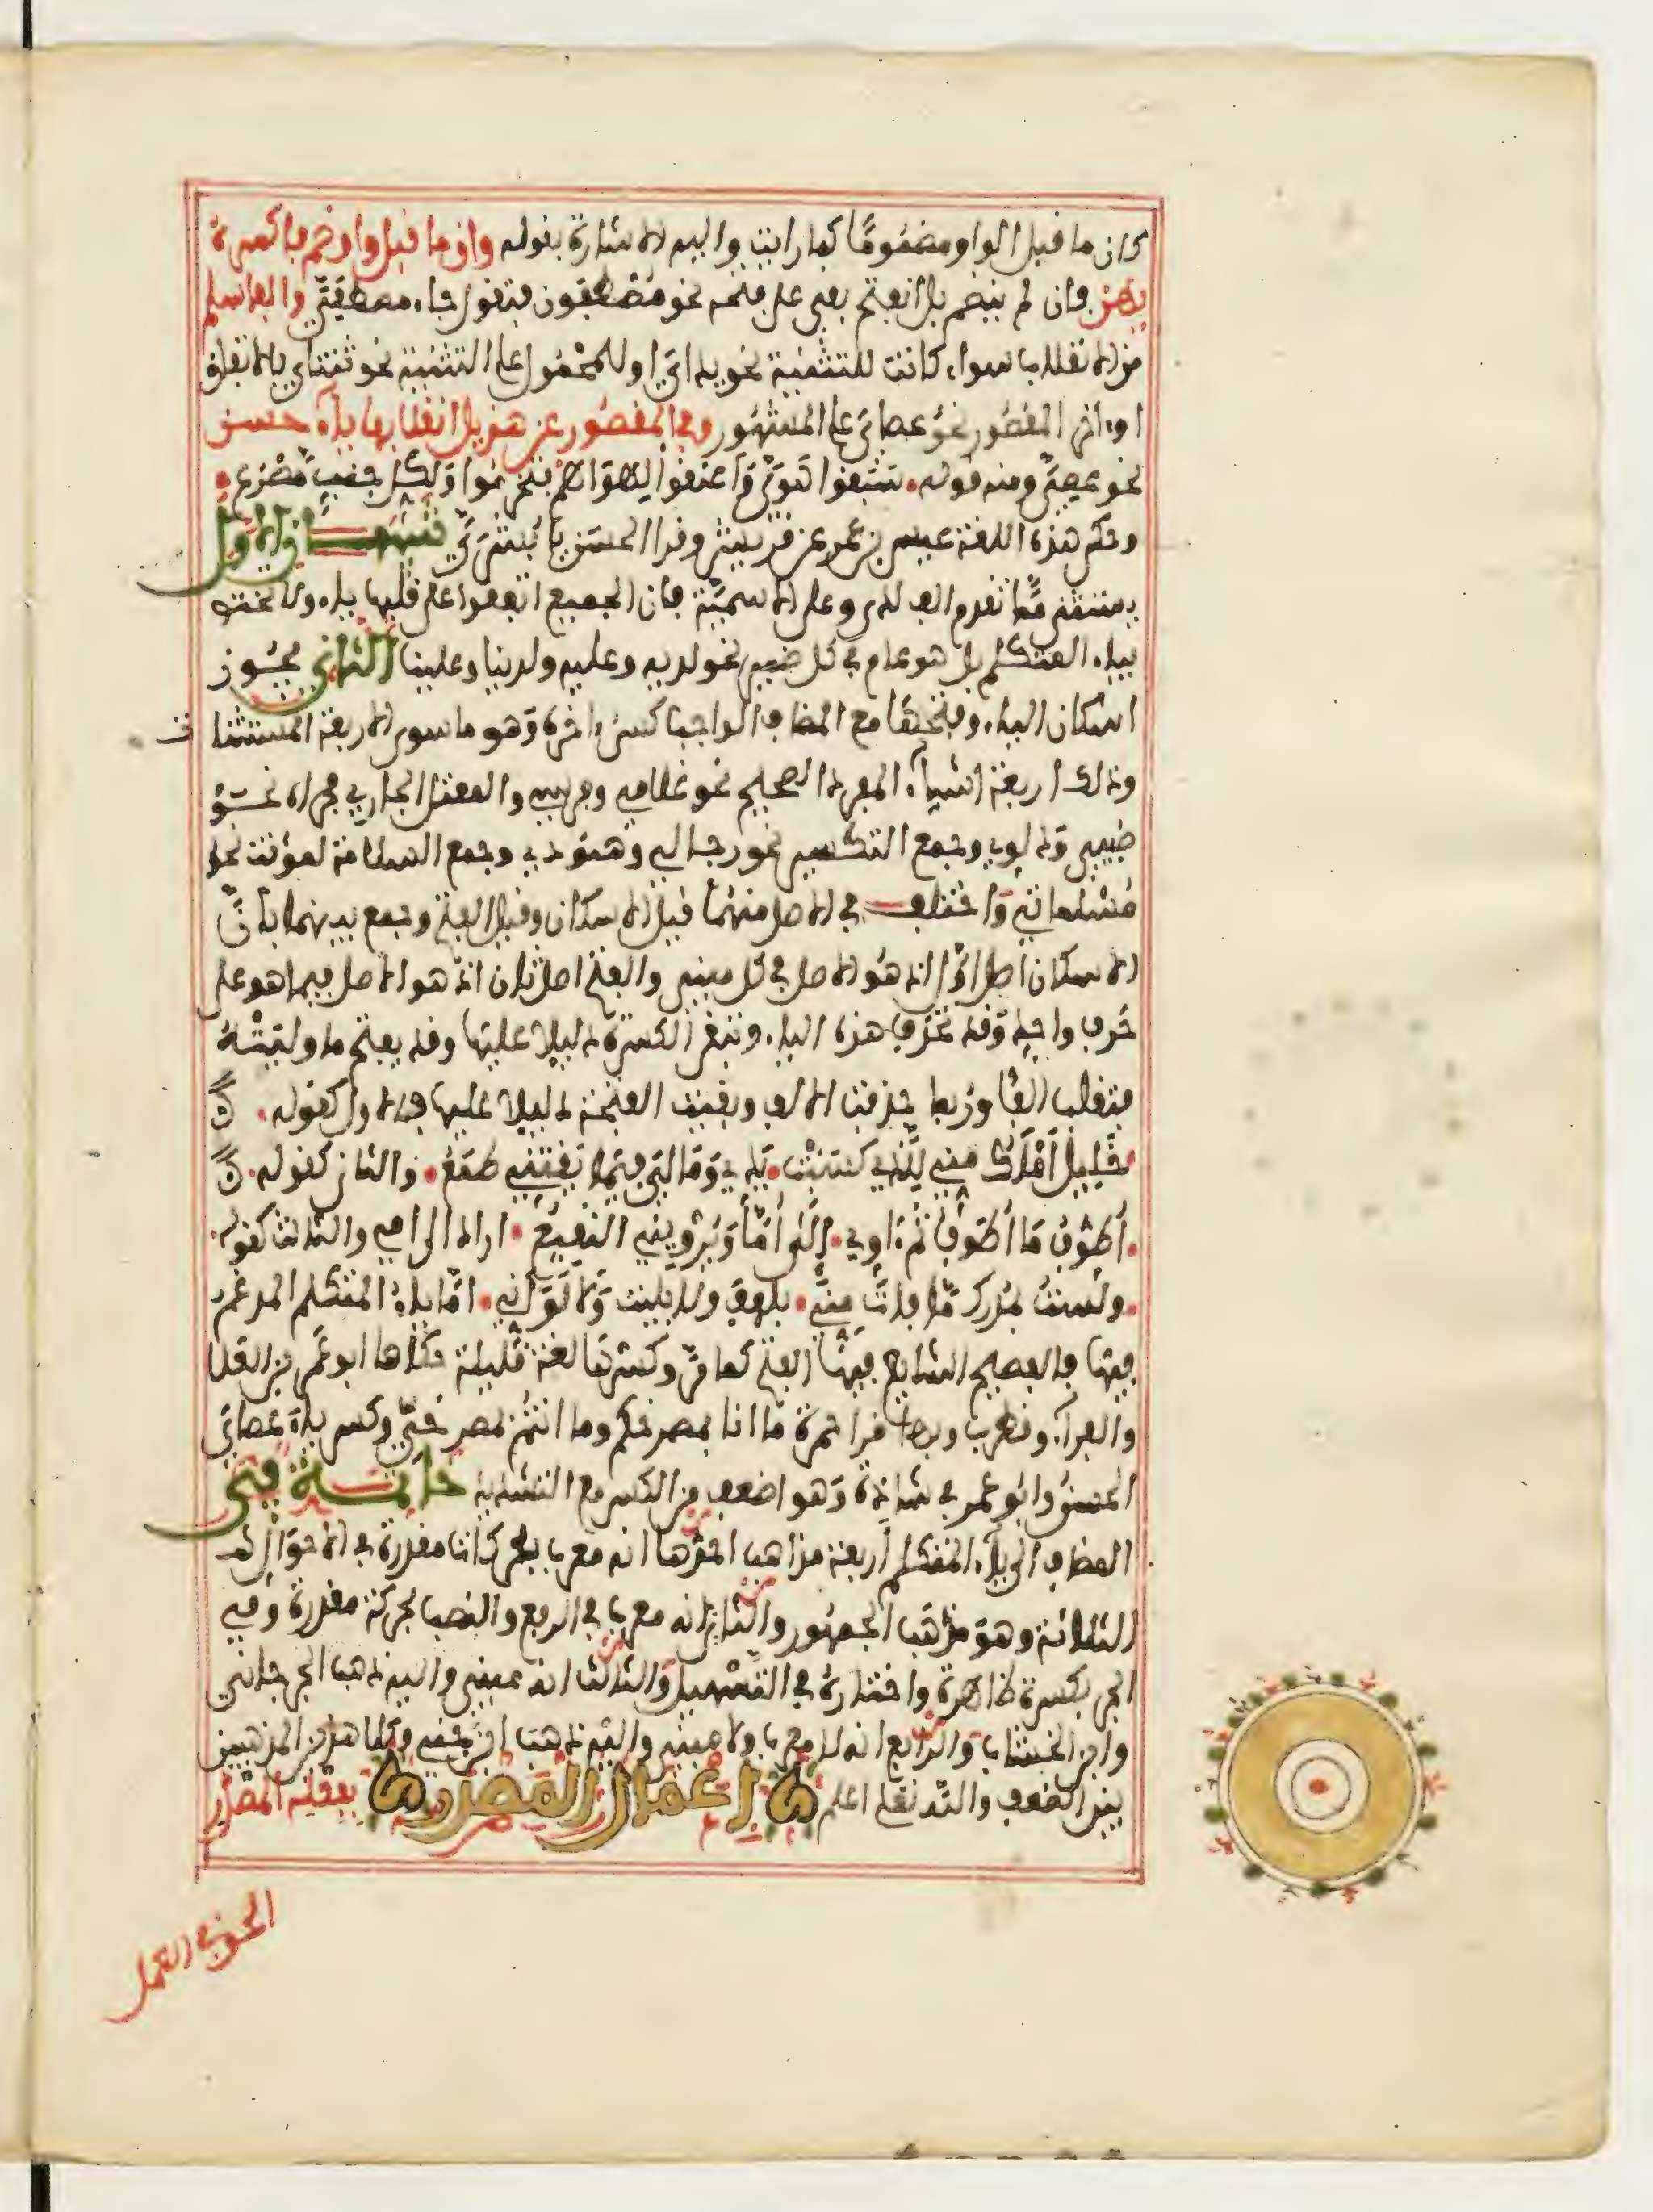 كان ما قبل الواو مضموما كما رايت واليه الاشارة بقوله وان ما قبل واو ضم فاكسره
يهن فان لم ينضم بل انفتح بقي على فتحه نحو مصطفون فتقول جاء مصطفيّ والفا سلم
من الانقلاب سواء كانت للتثنية نحو يداي او للمحمول على التثنية نحو ثنتاي بالاتفاق
او اخر المقصور نحو عصاي على المشهور وفي المقصور عن هذيل انقلابها ياء حسن
نحو عصيّ ومنه قوله سبقوا هويّ واعنقوا لهواهم فتخرموا ولكل جنب مصرع
وحكى هذه اللغة عيسى بن عمر عن قريش وقرا الحسن يا بشريّ تنبيهان الاول
يستثنى مما تقدم الف لدى وعلى الاسمية فان الجميع اتفقوا على قلبها ياء ولا تختص
بياء المتكلم بل هو عام في كل ضمير نحو لديه وعليه ولدينا وعلينا الثاني يجوز
اسكان الياء وفتحها مع المضاف الواجب كسر ءاخره وهو ما سوى الاربعة المستثنات
وذلك اربعة اشياء المفرد الصحيح نحو غلامي وفرسي والمعتل الجاري مجراه نحو
ظبيي ودلوي وجمع التكسير نحو رجالي وهنودي وجمع السلامة لمؤنث نحو
مسلماتي واختلف في الاصل منهما فقيل الاسكان وقيل الفتح وجمع بينهما بان
الاسكان اصل اول اذ هو الاصل في كل مبني والفتح اصل ثان اذ هو الاصل فيما هو على
حرف واحد وقد تحذف هذه الياء وتبقى الكسرة دليلا عليها وقد يفتح ما وليته
فتقلب الفا وربما حذفت الالف وبقيت الفتحة دليلا عليها فالاول كقوله
خليل املك مني للذي كسبت يدي وما لي فيما يقتني طمع والثاني كقوله
اطوف ما اطوف ثم ءاوي الى اما ويرويني النقيع اراد الى امي والثالث كقوله
ولست بمدرك ما فات مني بلهف ولا بليت ولا لو اني اما ياء المتكلم المدغم
فيها فالفصيح الشايع فيها الفتح كما مر وكسرها لغة قليلة حكاها ابو عمر بن العلا
والفراء وقطرب وبها قرا حمزة ما انا بمصرخكم وما انتم بمصرخيّ وكسر ياء عصاي
الحسن وابو عمر في شاذه وهو اضعف من الكسر مع التشديد خاتمة في
المضاف الى ياء المتكلم اربعة مذاهب احدها انه معرب بحركات مقدرة في الاحوال
الثلاثة وهو مذهب الجمهور والثاني انه معرب في الرفع والنصب بحركة مقدرة وفي
الجر بكسرة ظاهرة واختاره في التسهيل والثالث انه مبني واليه ذهب الجرجاني
وابن الخشاب والرابع انه لا معرب ولا مبني واليه ذهب ابن جني وكلا هذين المذهبين
بين الضعف والله تعلى اعلم اعمال المصدر بفعله المصدر
الحق في العمل